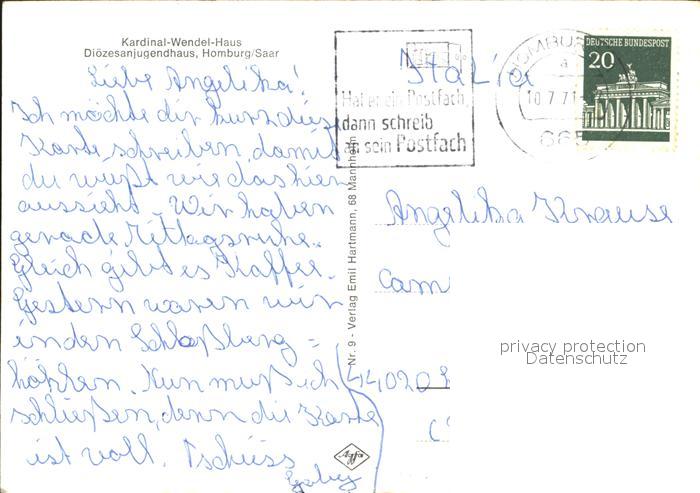 Kardinal-Wendel-Haus
Diözesanjugendhaus, Homburg/Saar
Liebe Angelika!
Ich möchte dir kurz diese
Karte schreiben, damit
du weißt wie das hier
aussieht. Wir haben
gerade Mittagsruhe.
Gleich gibt es Kaffee.
Gestern waren wir
in den Schloßberg=
höhlen. Nun muß ich
schließen, denn die Karte
ist voll. Tschüss
Gaby
Nr. 9 - Verlag Emil Hartmann, 68 Mannheim
Agfa
Italia
Hat er ein Postfach,
dann schreib
an sein Postfach
HOMBURG
a
10.7.71
665
DEUTSCHE BUNDESPOST
20
Angelika Krause
Cam
44020
privacy protection
Datenschutz